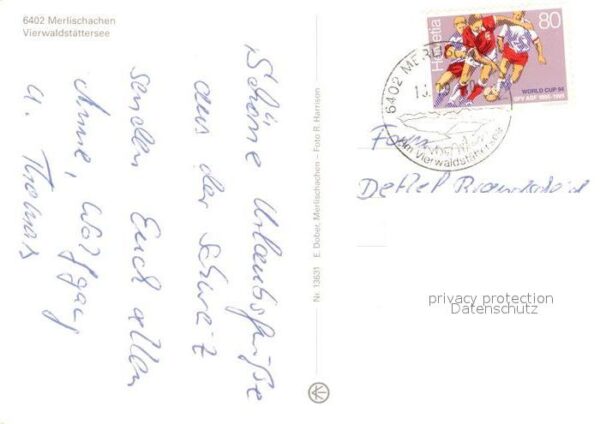 6402 Merlischachen
Vierwaldstättersee
Schöne Urlaubsgrüße
aus der Schweiz
senden Euch allen
Anne, Wolfgang
u. Thomas
Nr. 13631 E. Dober, Merlischachen – Foto R. Harrison
Helvetia
80
WORLD CUP 94
6402 MERLI
am Vierwaldstättersee
Detlef
privacy protection
Datenschutz